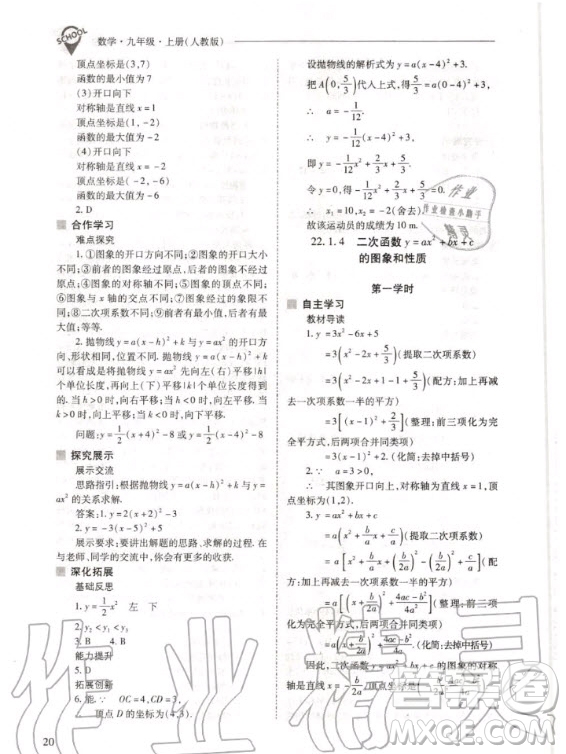 SCHOOL
数学·九年级·上册(人教版)
顶点坐标是(3,7)
函数的最小值为7
(3)开口向下
对称轴是直线 x=1
顶点坐标是(1,-2)
函数的最大值为-2
(4)开口向下
对称轴是直线 x=-2
顶点坐标是(-2,-6)
函数的最大值为-6
2. D
合作学习
难点探究
1. ①图象的开口方向不同;②图象的开口大小不
同;③前者的图象不经过原点,后者的图象经过原点;
④图象与 x 轴的交点不同;⑤图象经过的象限不同;
⑥二次项系数不同;⑦前者有最小值,后者有最大
值;等等.
2. 相同点:抛物线 y=a(x-h)²+k 与 y=ax² 的开口方
向、形状相同,位置不同. 抛物线 y=a(x-h)²+k
可以看成是将抛物线 y=ax² 先向左(右)平移|h|
个单位长度,再向上(下)平移|k|个单位长度得到
的. 当 h>0 时,向右平移;当 h<0 时,向左平移. 当
k>0 时,向上平移;当 k<0 时,向下平移.
问题:y=1/2(x+4)²-8 或 y=1/2(x-4)²-8
探究展示
展示交流
思路指引:根据抛物线 y=a(x-h)²+k 与 y=
ax² 的关系求解.
答案:1. y=2(x+2)²-3
2. y=-3(x-5)²+5
展示要求:要讲出解题的思路、求解的方法. 在
与老师、同学的交流中,你会有更多的收获.
深化拓展
基础反思
1. y=1/2x² 左 下
2. y₂<y₁<y₃
3. B 4. B
能力提升
5. D
拓展创新
6. 能. ∵ OC=4,CD=3,
顶点 D 的坐标为(4,3).
20
设抛物线的解析式为 y=a(x-4)²+3.
把 A(0,5/3)代入上式,得 5/3=a(0-4)²+3,
∴ a=-1/12.
∴ y=-1/12(x-4)²+3.
即 y=-1/12x²+2/3x+5/3.
令 y=0,得-1/12x²+2/3x+5/3=0.
∴ x₁=10,x₂=-2(舍去).
故该运动员的成绩为 10 m.
22.1.4 二次函数 y=ax²+bx+c
的图象和性质
第一学时
自主学习
教材导读
1. y=3x²-6x+5
=3(x²-2x+5/3)(提取二次项系数)
=3(x²-2x+1-1+5/3)(配方:加上再减
去一次项系数一半的平方)
=3[(x-1)²+2/3](整理:前三项化为完
全平方式,后两项合并同类项)
=3(x-1)²+2. (化简:去掉中括号)
2. ∵ a=3>0,
∴ 其图象开口向上,对称轴为直线 x=1,顶
点坐标为(1,2).
3. y=ax²+bx+c
=a(x²+b/a x+c/a)(提取二次项系数)
=a[x²+b/a x+(b/2a)²-(b/2a)²+c/a](配
方:加上再减去一次项系数一半的平方)
=a[(x+b/2a)²+(4ac-b²)/4a²](整理:前三项
化为完全平方形式,后两项合并同类项)
=a(x+b/2a)²+(4ac-b²)/4a. (化简:去掉中括号)
因此,二次函数 y=ax²+bx+c 的图象的对称
轴是直线 x=-b/2a
作业
作业检查小助手
精灵
作业精灵
答案圈
MXQE.COM